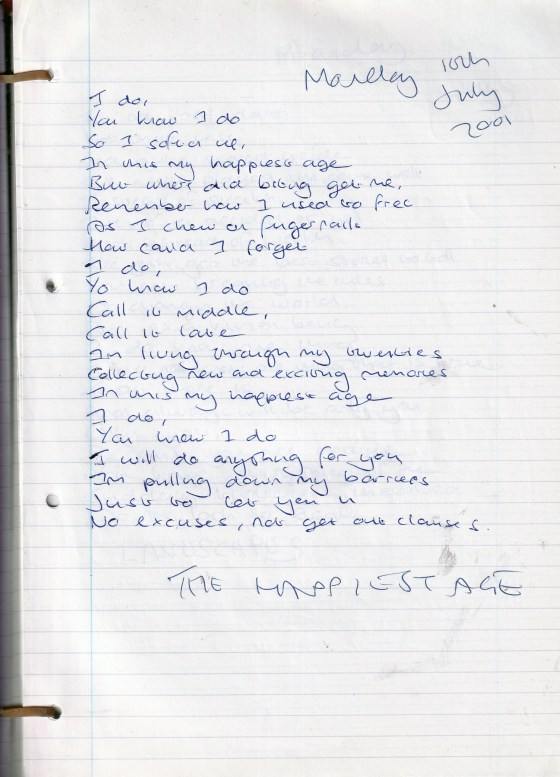 Monday 10th
July
2001
I do,
You know I do
So I sofur me,
In this my happiest age
But where did biting get me,
Remember how I used to free
As I chew on fingernails
How could I forget
I do,
Yo know I do
Call it middle,
Call it late
Im living through my twenties
Collecting new and exciting memories
In this my happiest age
I do,
You know I do
I will do anything for you
Im pulling down my barriers
Just to let you in
No excuses, not get out clauses.
THE HAPPIEST AGE